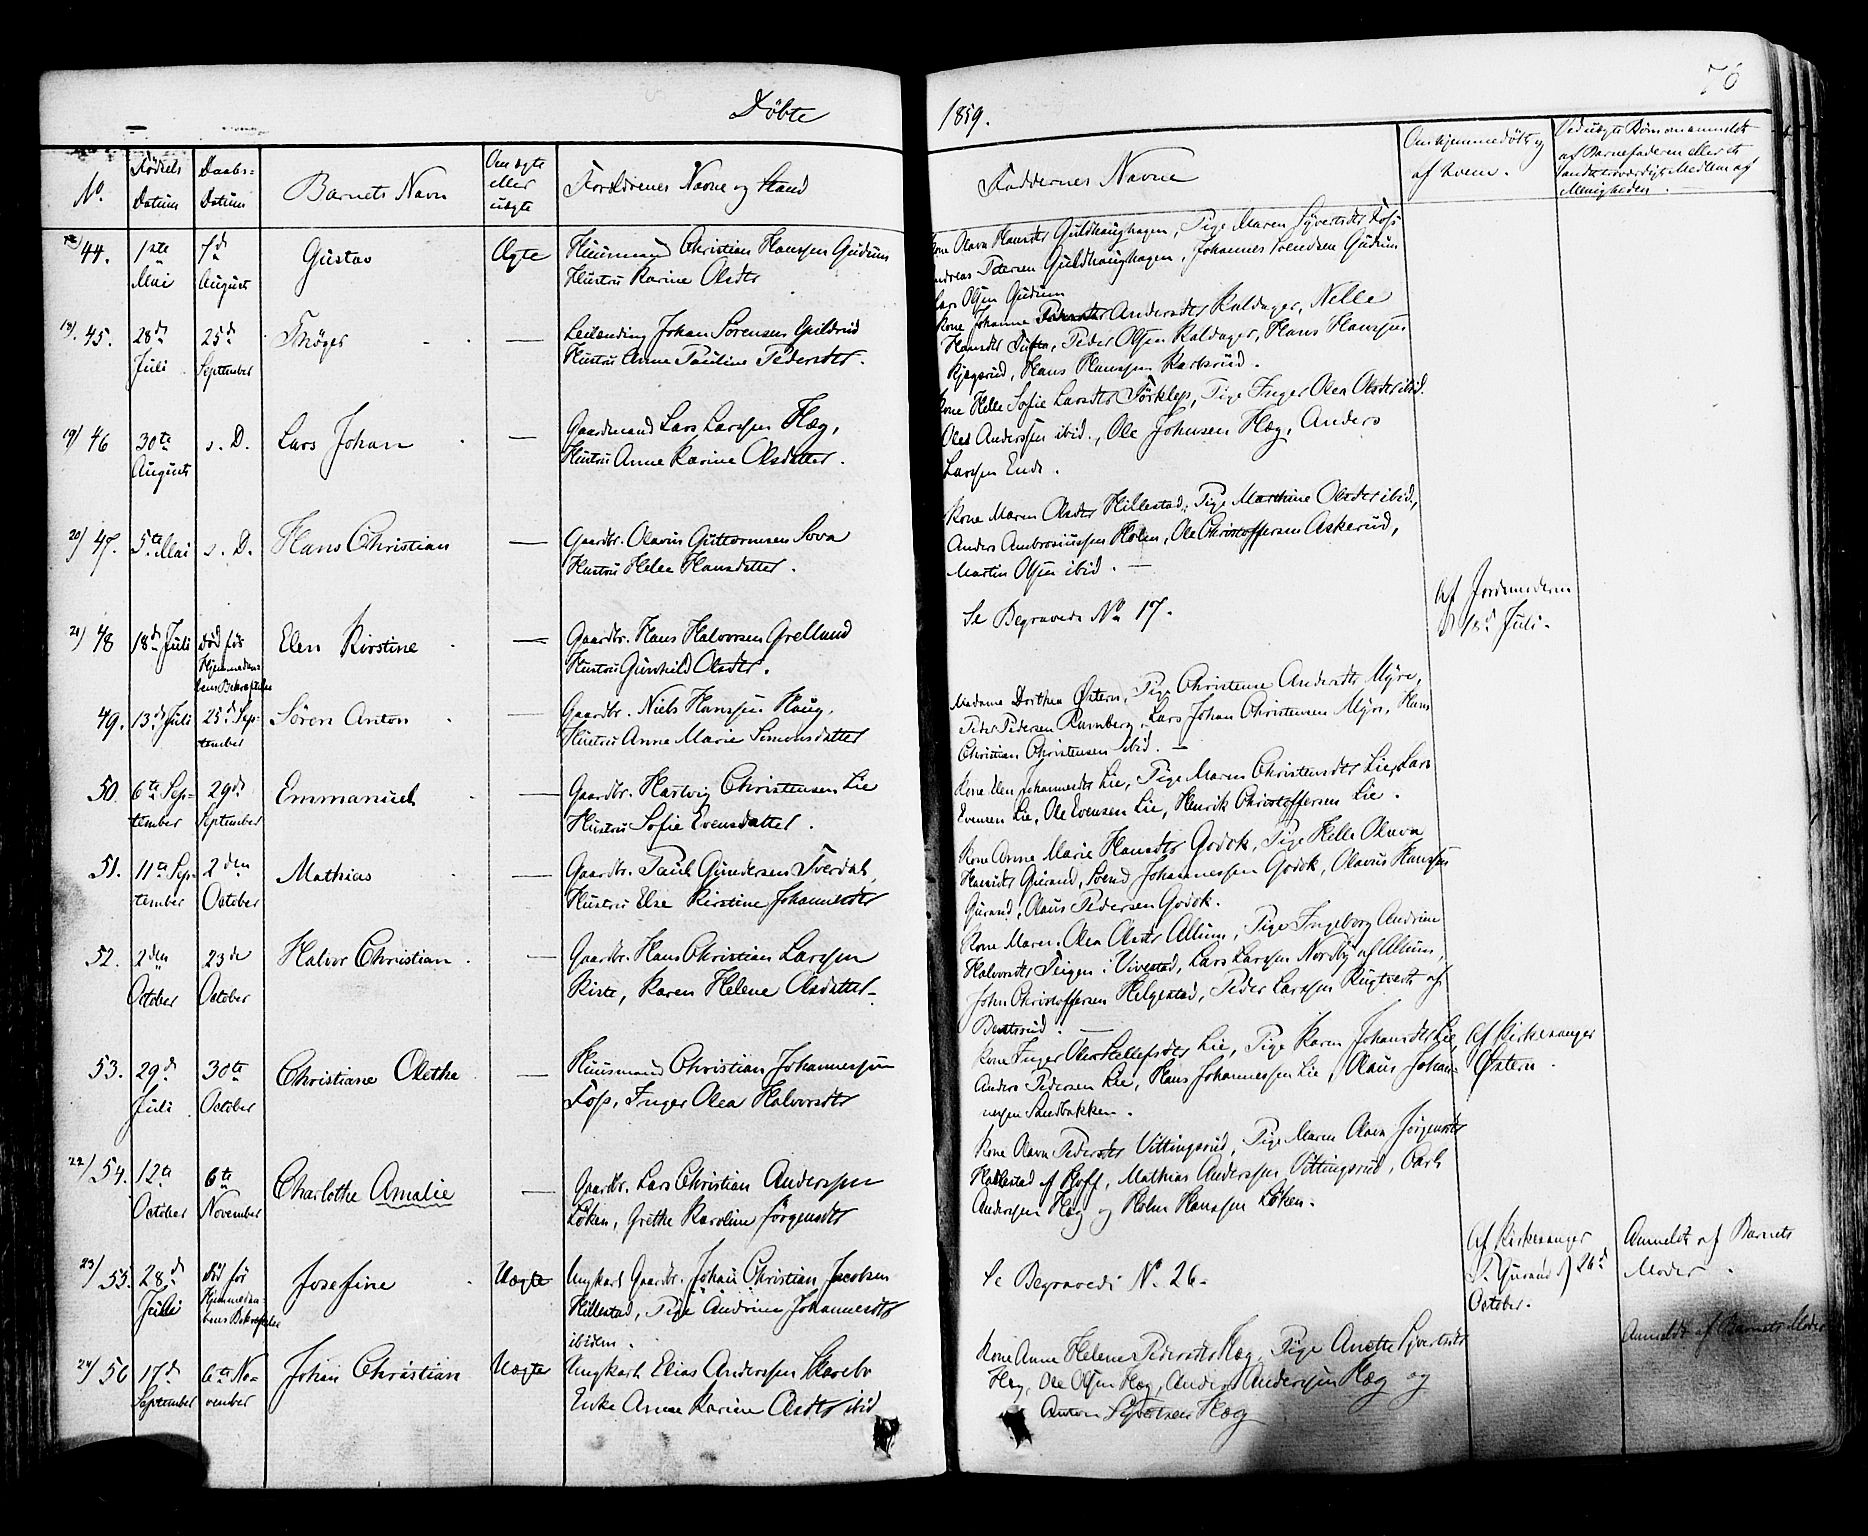 Döbte
1859.
76
No.
Födsels
Datum
Daabs-
Datum
Barnets Navn
Om ægte
eller
uægte
Forældrenes Navne og Stand
Faddernes Navne
Om hjemmedöbt og
af hvem.
Ved uægte Börn om anmeldt
af Barnefaderen eller et
andet troværdigt Medlem af
Menigheden.
44.
1ste
Mai
7de
August
Gustav
Ægte
Huusmand Christian Hanssen Gudum
Hustru Karine Olsdtr
Kone Olava Hansdtr Guldhaughagen, Pige Maren Syvertsdtr Foss
Andreas Petersen Guldhaughagen, Johannes Svendsen Gudum
Lars Olsen Gudum
18/ 45.
28de
Juli
25de
September
Thöger
—
Leilænding Johan Sörensen
Hustru Anne Pauline Pedersdtr.
Kone Johanne Andersdtr Kaldager, Nelle
Hansdtr, Peder Olsen Kaldager, Hans Hanssen
Hans Hanssen
19/ 46
30te
August
s. D.
Lars Johan
—
Gaardmand Lars Larssen Hæg,
Hustru Anne Karine Olsdatter.
Kone Helle Sofie Larsdtr, Pige Inger Olea Olsdtr ibid.
Anderssen ibid., Ole Johnsen Hæg, Anders
Larssen Ende.
20/ 47.
5te Mai
s. D.
Hans Christian
—
Gaardbr. Olavus Guttormsen Sova
Hustru Helene Hansdatter.
Kone Maren Olsdtr Hillestad, Pige Marthine Olsdtr ibid,
Anders Ambrosiussen Holen, Ole Christoffersen Askerud,
Martin Olsen ibid. —
21/ 48
18de Juli
död för
Hjemmedaa-
bens Bekræftelse
Elen Kirstine
—
Gaardbr. Hans Halvorsen Grelland
Hustru Gunhild Olsdtr.
Se Begravede No 17.
Af Jordmoderen
d 18de Juli.
49.
13de Juli
25de Sep-
tember
Sören Anton
—
Gaardbr. Niels Hanssen Haug,
Hustru Anne Marie Simonsdatter
Madame Dorthea Östern, Pige Christense Andersdtr Myre,
Peder Pedersen Ravnberg, Lars Johan Christensen Myre, Hans
Christian Christensen ibid. —
50.
6te Sep-
tember
29de
September
Emmanuel
—
Gaardbr. Hartvig Christensen Lie
Hustru Sofie Evensdatter.
Kone Elen Johannesdtr Lie, Pige Maren Christensdtr Lie, Lars
Evensen Lie, Ole Evensen Lie, Henrik Christoffersen Lie.
51.
11te Sep-
tember
2den
October
Mathias
—
Gaardbr. Paul Gundersen Tverdal,
Hustru Else Kirstine Johannesdtr
Kone Anne Marie Hansdtr Godok, Pige Helle Olava
Hansdtr Gurand, Svend Johannessen Godok, Olavus Hanssen
Gurand, Olaus Pedersen Godok.
52.
2den
October
23de
October
Halvor Christian.
—
Gaardbr. Hans Christian Larssen
Kiste, Karen Helene Olsdatter.
Kone Maren Olea Olsdtr Allum, Pige Ingeborg Andrine
Halvorsdtr Teigen i Vivestad, Lars Larssen Nordby af Allum,
John Christoffersen Helgestad, Peder Larssen Rugtvedt af
Bentsrud. —
53.
29de
Juli
30te
October
Christiane Olethe
—
Huusmand Christian Johannessen
Foss, Inger Olea Halvorsdtr
Kone Inger Olea Stellefsdtr Lie, Pige Karen Johansdtr Lie
Anders Pedersen Lie, Hans Johannessen Lie, Olaus Johan-
nessen Sandbakken.
Af Kirkesanger
Östern.
22/ 54.
12te
October
6te
November
Charlothe Amalie
—
Gaardbr. Lars Christian Anderssen
Löken, Grethe Karoline Jörgensdtr
Kone Olava Pedersdtr Vittingsrud, Pige Maren Olava Jörgensdtr
Hallestad af Hoff, Mathias Anderssen Vittingsrud, Carl
Anderssen Hæg og Holm Hanssen Löken.
23/ 55.
28de
Juli
död för
Hjemmedaa-
bens Bekræftelse
Josefine
Uægte
Ungkarl Gaardbr. Johan Christian Jacobsen
Hillestad, Pige Andrine Johannesdtr
ibidem.
Se Begravede No. 26.
Af Kirkesanger
P. Gurand d 26de
October.
Anmeldt af Barnets
Moder.
24/ 56
17de
September
6te No-
vember
Johan Christian
Uægte
Ungkarl Elias Anderssen Skarebo
Enke Anne Karine Olsdtr ibid
Kone Anne Helene Pedersdtr Hæg, Pige Anette Syvertsdtr
Hæg, Ole Olsen Hæg, Anders Anderssen Hæg og
Anton Syvertsen Hæg
Anmeldt af Barnets Moder